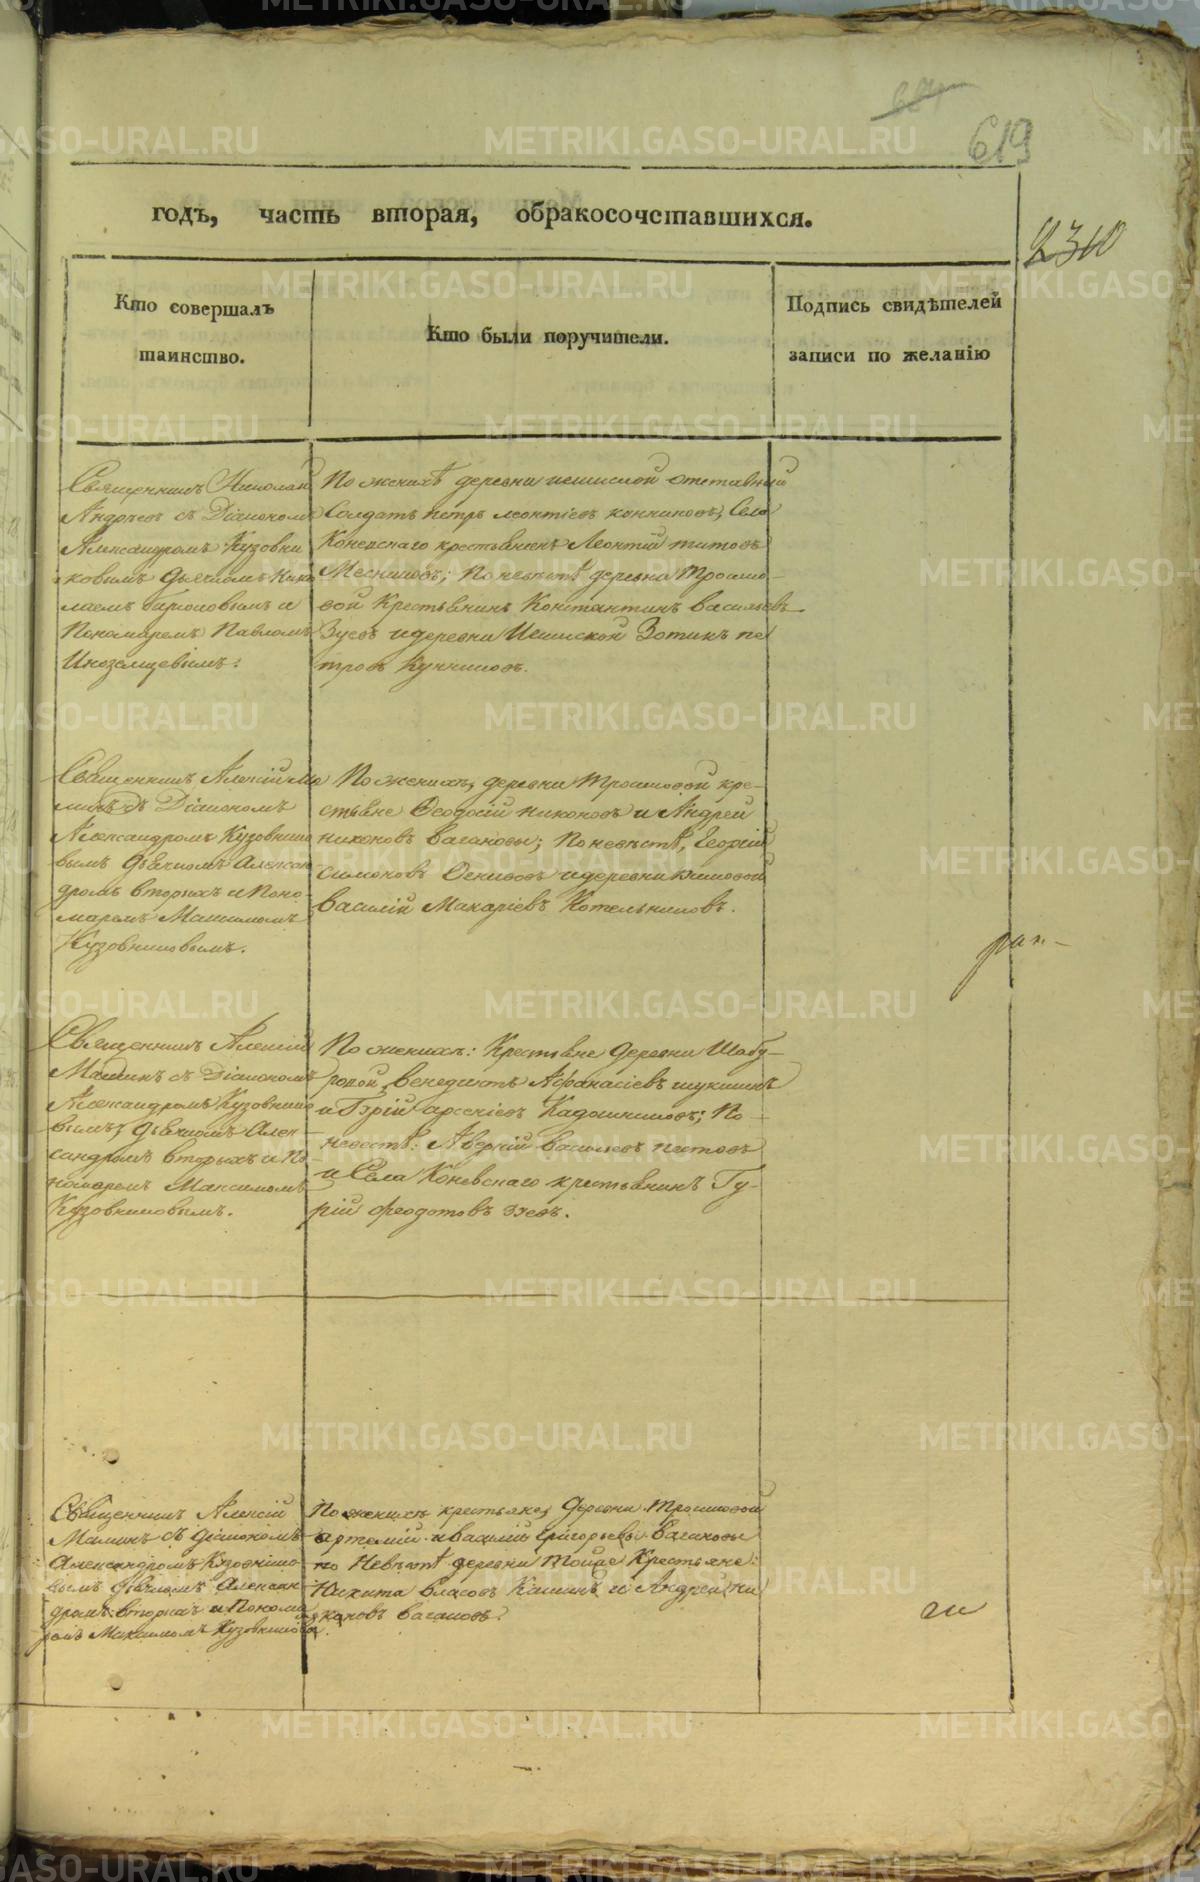 619
годъ, часть вторая, обракосочетавшихся.
2310
Кто совершалъ
таинство.
Кто были поручители.
Подпись свидѣтелей
записи по желанію
Священникъ Николай
Андреевъ съ Діакономъ
Александромъ Кузовни
ковымъ дьячкомъ Нико
лаемъ и
Пономаремъ Павломъ
Иноземцевымъ.
По женихѣ деревни отставный
Солдатъ петръ леонтіевъ Села
Коневскаго крестьянинъ Леонтій титовъ
По невѣстѣ деревни Трошко
вой Крестьянинъ Константинъ васильевъ
Зуевъ и деревни Зотикъ пе
тровъ
Священникъ Алексій Ма
минъ съ Діакономъ
Александромъ Кузовнико
вымъ дьячкомъ Алексан
дромъ вторыхъ и Поно
маремъ Максимомъ
Кузовниковымъ.
По женихѣ, деревни Трошковой кре-
стьяне Ѳеодосій никоновъ и Андрей
никоновъ вагановы; По невѣстѣ, Георгій
симоновъ и деревни
василій Макаріевъ Котельниковъ.
Священникъ Алексій
Маминъ съ Діакономъ
Александромъ Кузовнико
вымъ, дьячкомъ Алек-
сандромъ вторыхъ и По
номаремъ Максимомъ
Кузовниковымъ.
По женихѣ: Крестьяне деревни Шабу-
ровой, венедиктъ Афанасіевъ щукинъ
и Гурій арсеніевъ По-
невестѣ: Аверкій васильевъ пестовъ
и Села Коневскаго крестьянинъ Гу-
рій федотовъ зуевъ.
Священникъ Алексій
Маминъ съ діакономъ
Александромъ Кузовнико
вымъ дьячкомъ Алексан
дромъ вторыхъ и Понома
ремъ Максимомъ Кузовниковы
По женихѣ крестьяне, Деревни Трошковой
артемій и василій григорьевы вагановы
по Невѣстѣ деревни Крестьяне:
Никита власовъ и Андрей ни
коновъ вагановъ.